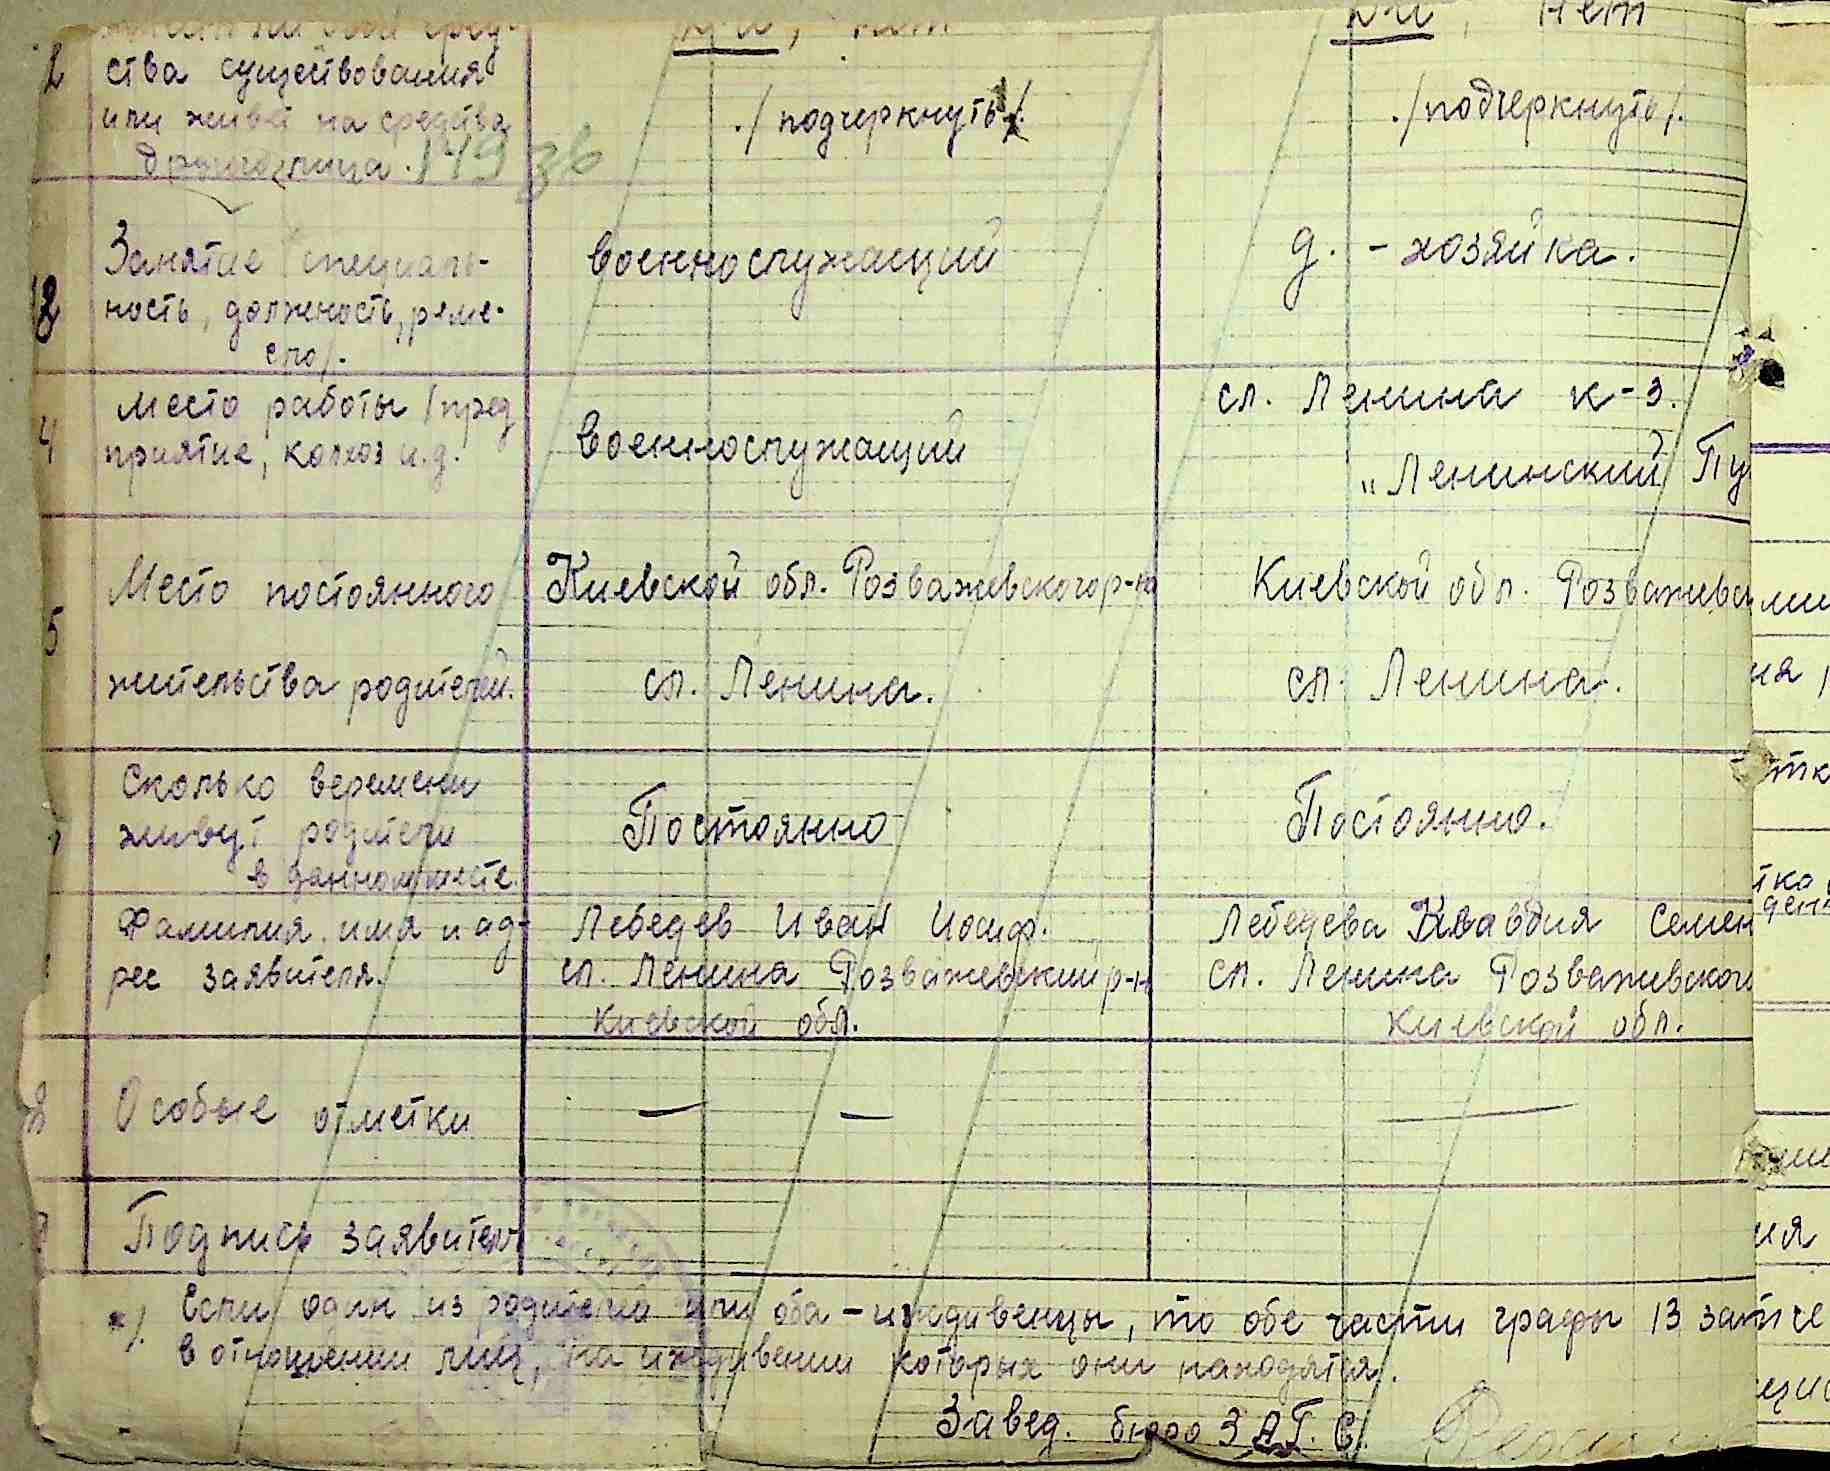 да, нет
да, нет
2
ства существования
или живет на средства
другого лица.
1936
./подчеркнуть/.
./подчеркнуть/.
Занятие /специаль-
ность, должность, реме-
сло/.
военнослужащий
д. - хозяйка.
4
Место работы /пред
приятие, колхоз и.д.
военнослужащий
сл. Ленина к-з.
"Ленинский Пу
5
Место постоянного
жительства родителей.
Киевской обл. Розважевского р-на
сл. Ленина.
Киевской обл. Розважевс
сл. Ленина.
Сколько веремени
живут родители
в данном месте.
Постоянно
Постоянно.
Фамилия, имя и ад-
рес заявителя.
Лебедев Иван Иосиф.
сл. Ленина Розважевский р-н
Киевской обл.
Лебедева Клавдия Семен
сл. Ленина Розважевского
Киевской обл.
8
Особые отметки
— —
—
Подпись заявителя
*/. Если один из родителей или оба – иждивенцы, то обе части графы 13 запче
в отношении лиц, на иждивении которых они находятся.
Завед. бюро ЗАГС.